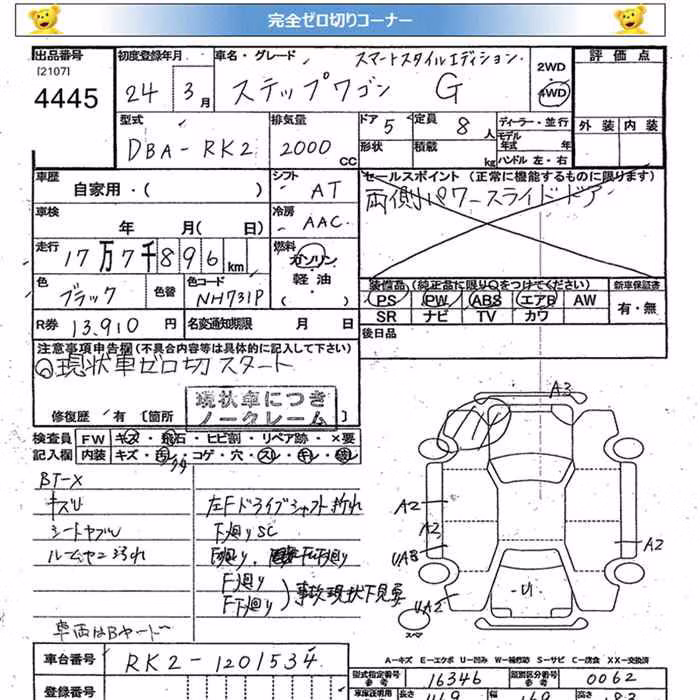 完全ゼロ切りコーナー
出品番号 初度登録年月 車名・グレード スマートスタイルエディション 2WD 評価点
[2107]
4445 24 3月 ステップワゴン G 4WD
型式 排気量 ドア 5 定員 8人 ディーラー・並行 外装 内装
DBA-RK2 2000cc 形状 積載 kg モデル年式 年 ハンドル 左・右
車歴 シフト セールスポイント (正常に機能するものに限ります)
自家用・( ) AT 両側パワースライドドア
車検 冷房
年 月( 日) AAC
走行 燃料
17万7千896km ガソリン
軽油
色 色替 色コード 装備品 (純正品に限り○をつけてください) 新車保証書
ブラック NH731P ( ) PS PW ABS エアB AW 有・無
SR ナビ TV カワ
R券 13,910円 名変通知期限 月 日 後日品
注意事項申告欄 (不具合内容等は具体的に記入して下さい)
◎現状車ゼロ切スタート
現状車につき
ノークレーム
修復歴 有 [箇所
検査員 FW キズ・飛石・ヒビ割・リペア跡・×要
記入欄 内装 キズ・汚レ・コゲ・穴・スレ・キレ・破レ
BT-X
キズU 左Fドライブシャフト折れ
シートヤブレ 下廻りSC
ルームヤニ汚れ
F廻り
F下廻り 事故現状下見要
車両はBヤード
A3
A2
A3
UA3
UA2
A2
U
スペア
A-キズ E-エクボ U-凹み W-補修跡 S-サビ C-腐食 XX-交換済
車台番号 RK2-1201534
型式指定番号 参考 16346 類別区分番号 参考 0062
登録番号 車庫証明用 参考 長さ 469 幅 169 高さ